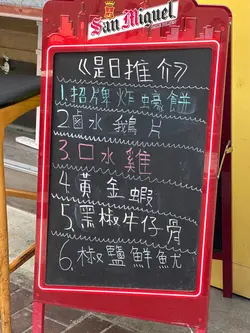 San Miguel
《是日推介》
1.招牌炸蠔餅
2.鹵水鵝片
3.口水雞
4.黃金蝦
5.黑椒牛仔骨
6.椒鹽鮮魷